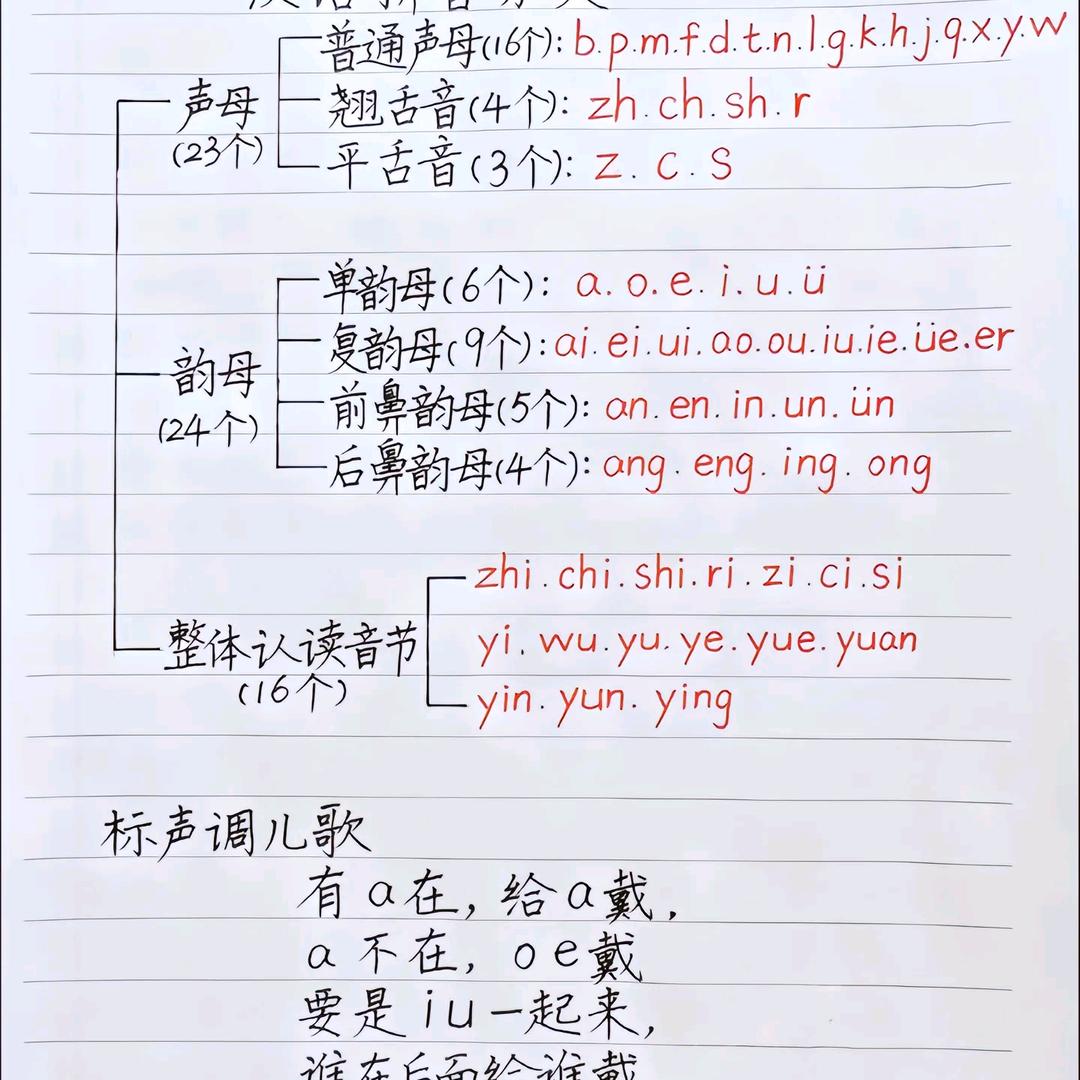 汉语拼音分类
普通声母(16个): b.p.m.f.d.t.n.l.g.k.h.j.q.x.y.w
声母
(23个)
翘舌音(4个): zh.ch.sh.r
平舌音(3个): z.c.s
单韵母(6个): a.o.e.i.u.ü
韵母
(24个)
复韵母(9个): ai.ei.ui.ao.ou.iu.ie.üe.er
前鼻韵母(5个): an.en.in.un.ün
后鼻韵母(4个): ang.eng.ing.ong
整体认读音节
(16个)
zhi.chi.shi.ri.zi.ci.si
yi.wu.yu.ye.yue.yuan
yin.yun.ying
标声调儿歌
有a在,给a戴,
a不在,oe戴
要是iu一起来,
谁在后面给谁戴